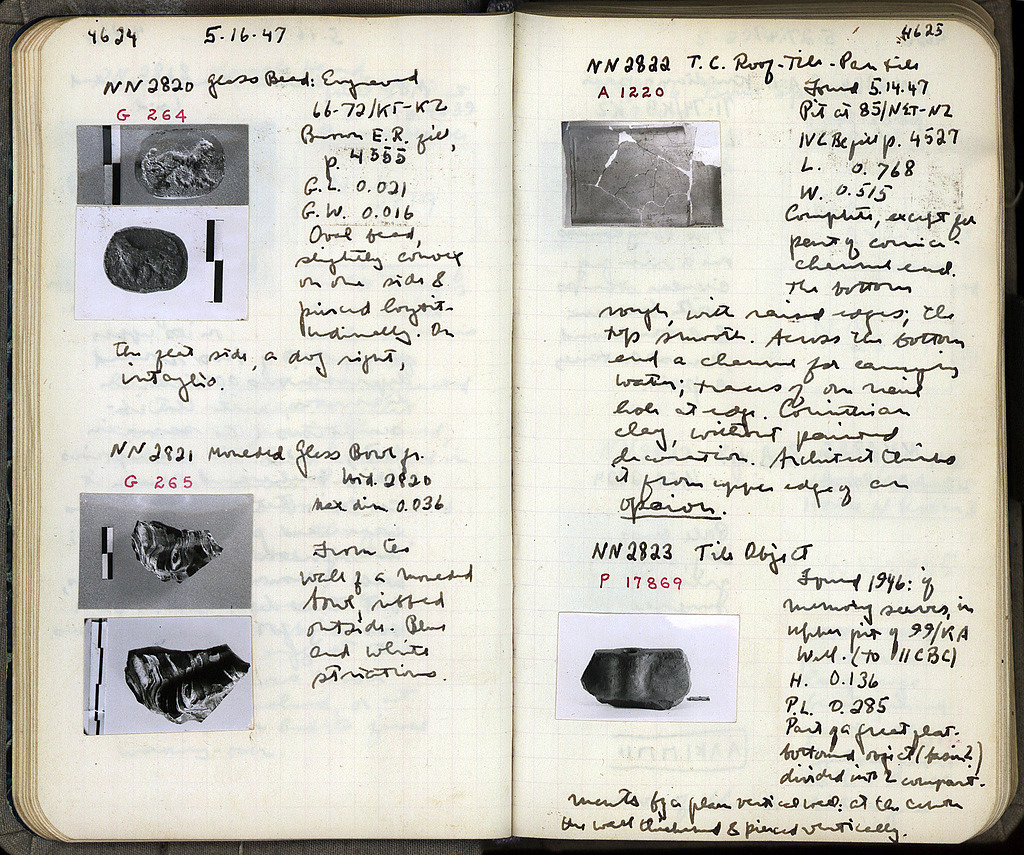 4624 5.16.47
NN2820 Glass Bead: Engraved
G 264
66-72/KΣT-KZ
Brown E.R. fill,
p. 4555
G.L. 0.021
G.W. 0.016
Oval bead,
slightly convex
on one side &
pierced longit-
udinally. On
the flat side, a dog right,
intaglio.
NN2821 Moulded Glass Bowl fr.
G 265
W.d. 2820
Max dim 0.036
From the
wall of a moulded
bowl, ribbed
outside. Blue
and white
striations.
4625
NN2822 T.C. Roof-Tile-Pan tile
A 1220
Found 5.14.47
Pit at 85/NΣT-NZ
IV c. Bc fill p. 4527
L. 0.768
W. 0.515
Complete, except for
part of
channel end.
The bottom
rough, with raised edges; the
top smooth. Across the bottom
end a channel for carrying
water; traces of one nail
hole at edge. Corinthian
clay, without painted
decoration. Architect thinks
it from upper edge of an
opaion.
NN2823 Tile Object
P 17869
Found 1946: if
memory serves, in
upper pit of 99/KA
Well. (to II C BC)
H. 0.136
P.L. 0.285
Part of a great flat-
bottomed object (basin?)
divided into 2 compart-
ments by a plain vertical wall: at the center
the wall thickened & pierced vertically.